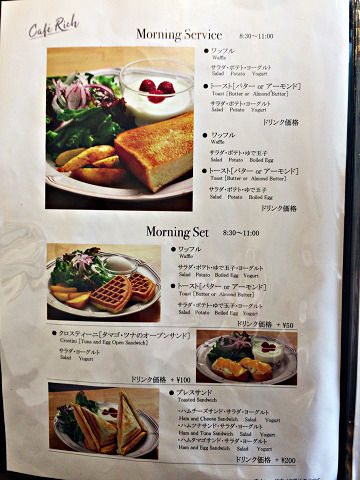 Café Rich
Morning Service 8:30～11:00
● ワッフル
Waffle
サラダ・ポテト・ヨーグルト
Salad Potato Yogurt
● トースト[バター or アーモンド]
Toast [Butter or Almond Butter]
サラダ・ポテト・ヨーグルト
Salad Potato Yogurt
ドリンク価格
● ワッフル
Waffle
サラダ・ポテト・ゆで玉子
Salad Potato Boiled Egg
● トースト[バター or アーモンド]
Toast [Butter or Almond Butter]
サラダ・ポテト・ゆで玉子
Salad Potato Boiled Egg
ドリンク価格
Morning Set 8:30～11:00
● ワッフル
Waffle
サラダ・ポテト・ゆで玉子・ヨーグルト
Salad Potato Boiled Egg Yogurt
● トースト[バター or アーモンド]
Toast [Butter or Almond Butter]
サラダ・ポテト・ゆで玉子・ヨーグルト
Salad Potato Boiled Egg Yogurt
ドリンク価格 + ¥50
● クロスティーニ[タマゴ・ツナのオープンサンド]
Crostini [Tuna and Egg Open Sandwich]
サラダ・ヨーグルト
Salad Yogurt
ドリンク価格 + ¥100
● プレスサンド
Toasted Sandwich
・ハムチーズサンド・サラダ・ヨーグルト
Ham and Cheese Sandwich Salad Yogurt
・ハムツナサンド・サラダ・ヨーグルト
Ham and Tuna Sandwich Salad Yogurt
・ハムタマゴサンド・サラダ・ヨーグルト
Ham and Egg Sandwich Salad Yogurt
ドリンク価格 + ¥200